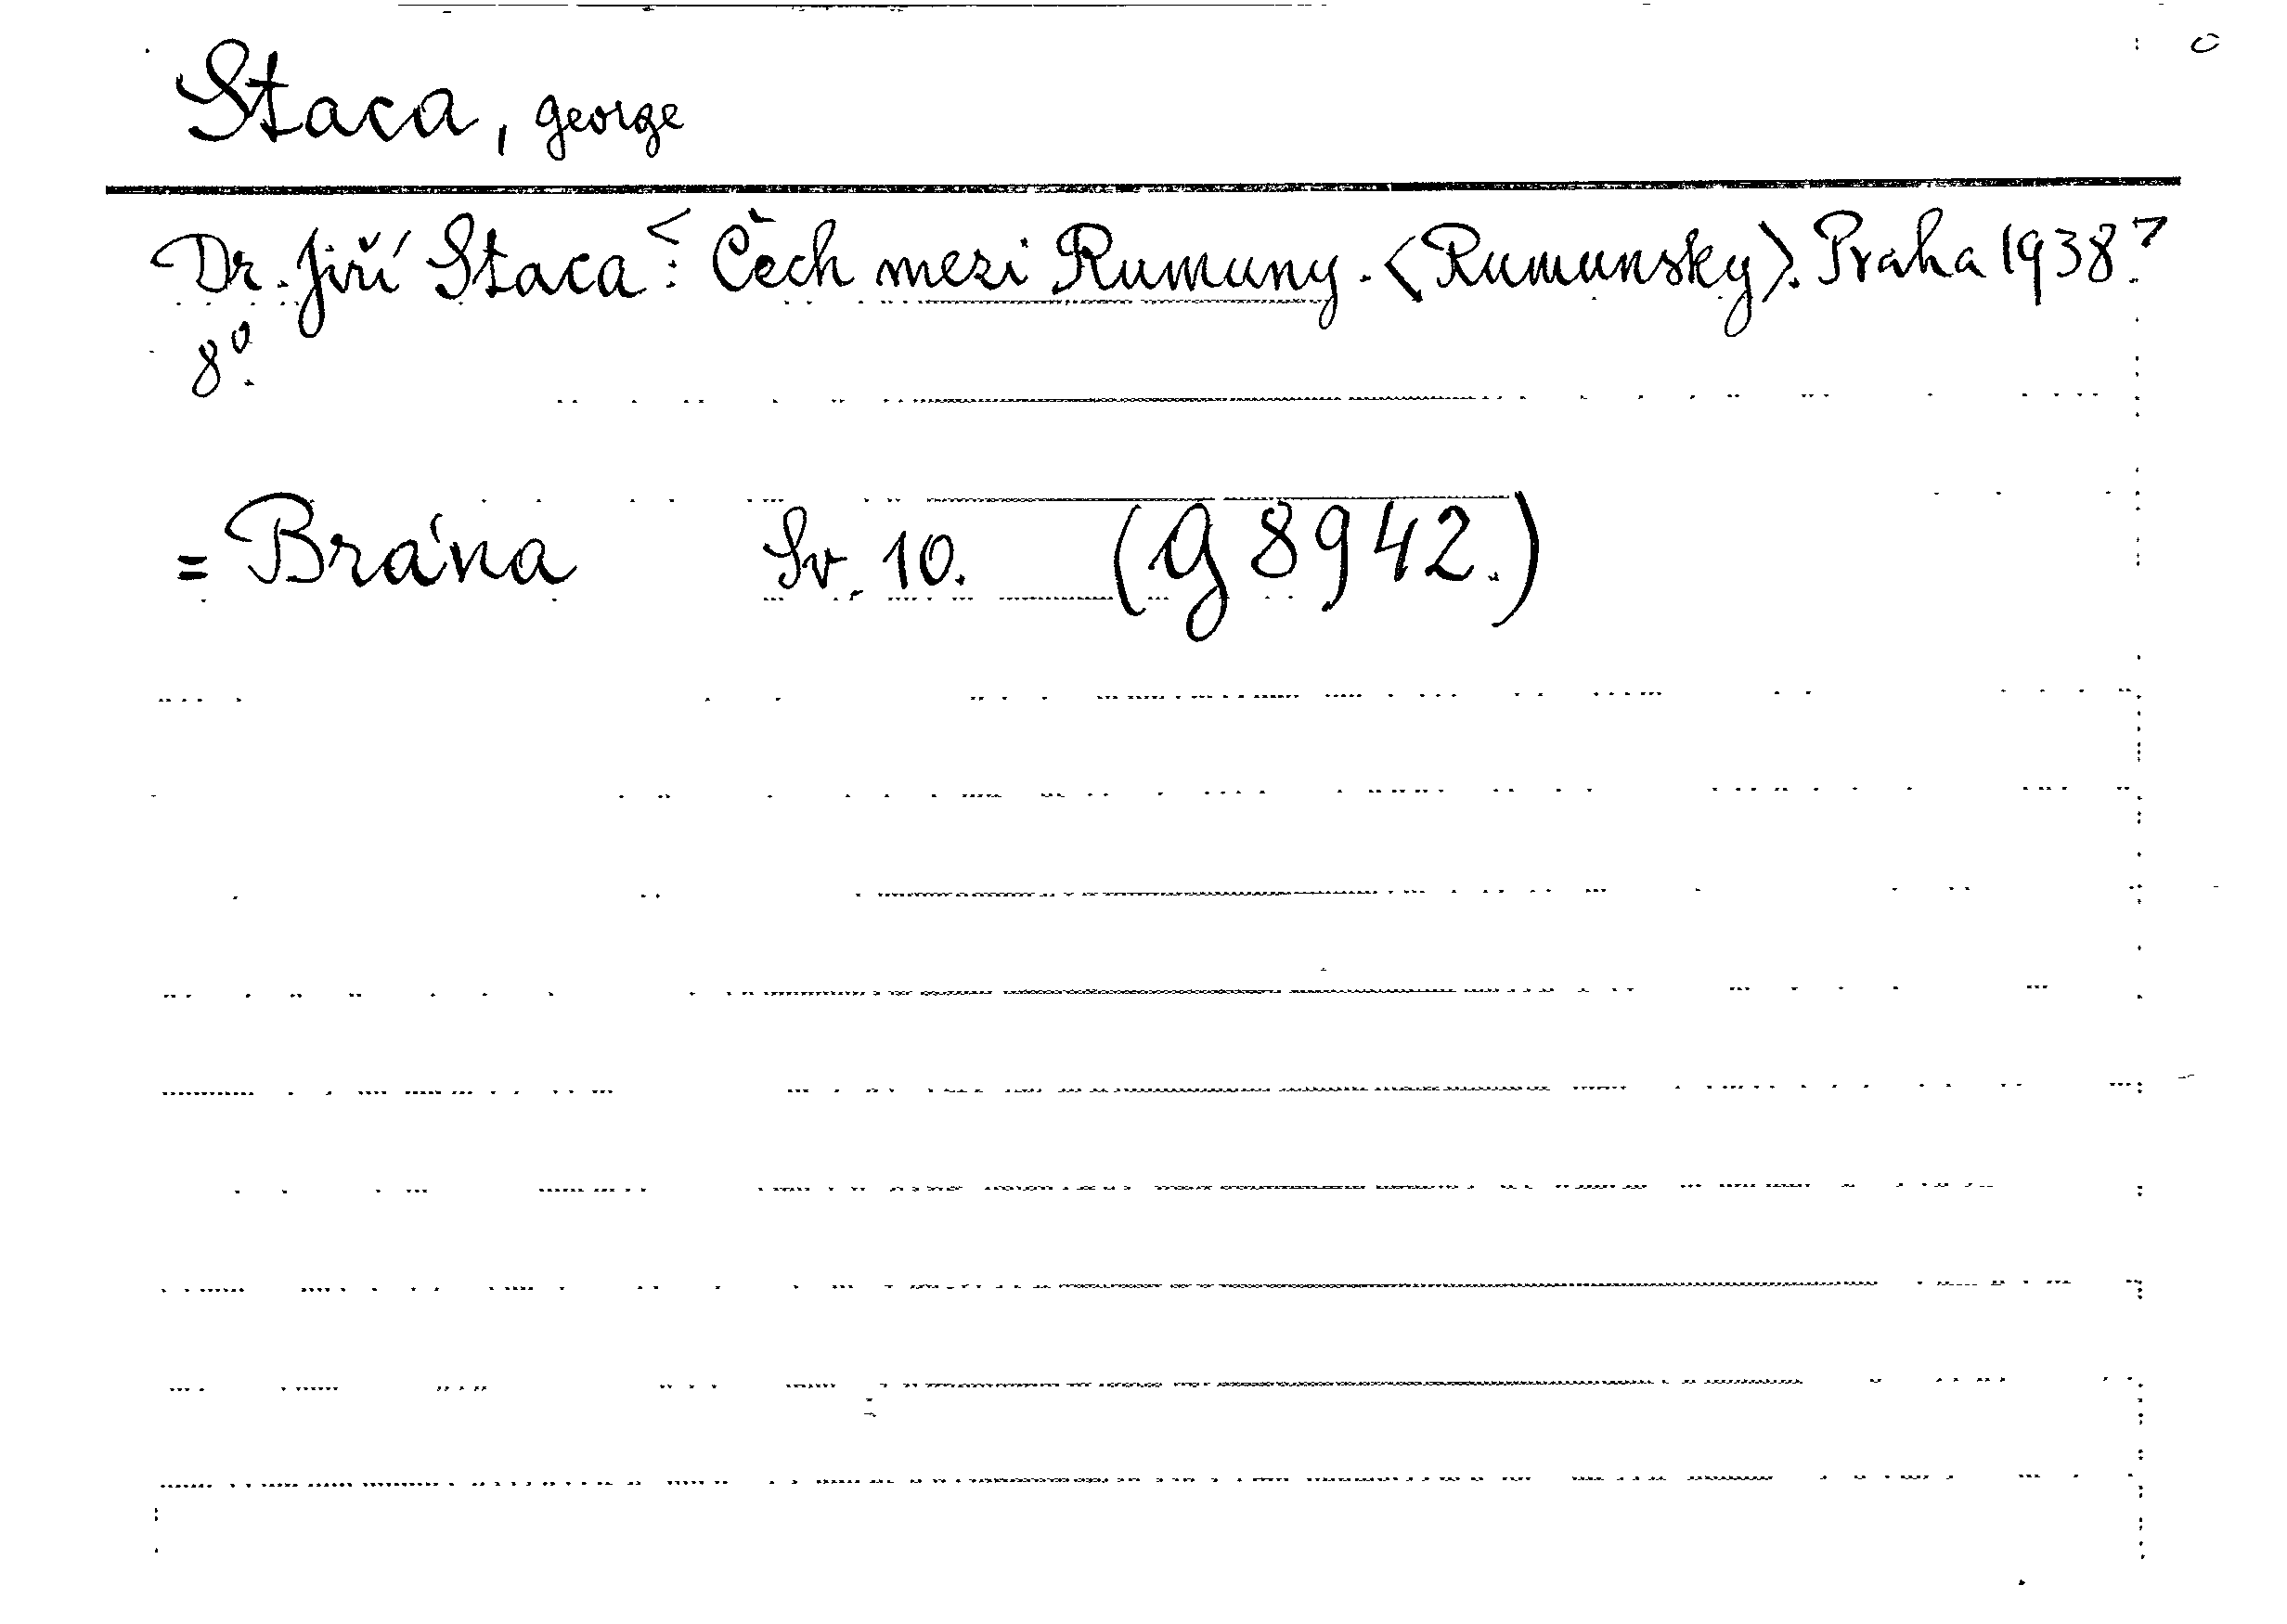 Staca, George
Dr. Jiří Staca <: Čech mezi Rumuny. <Rumunsky>. Praha 1938.>
8º.
= Brána Sv. 10. (G 8942.)